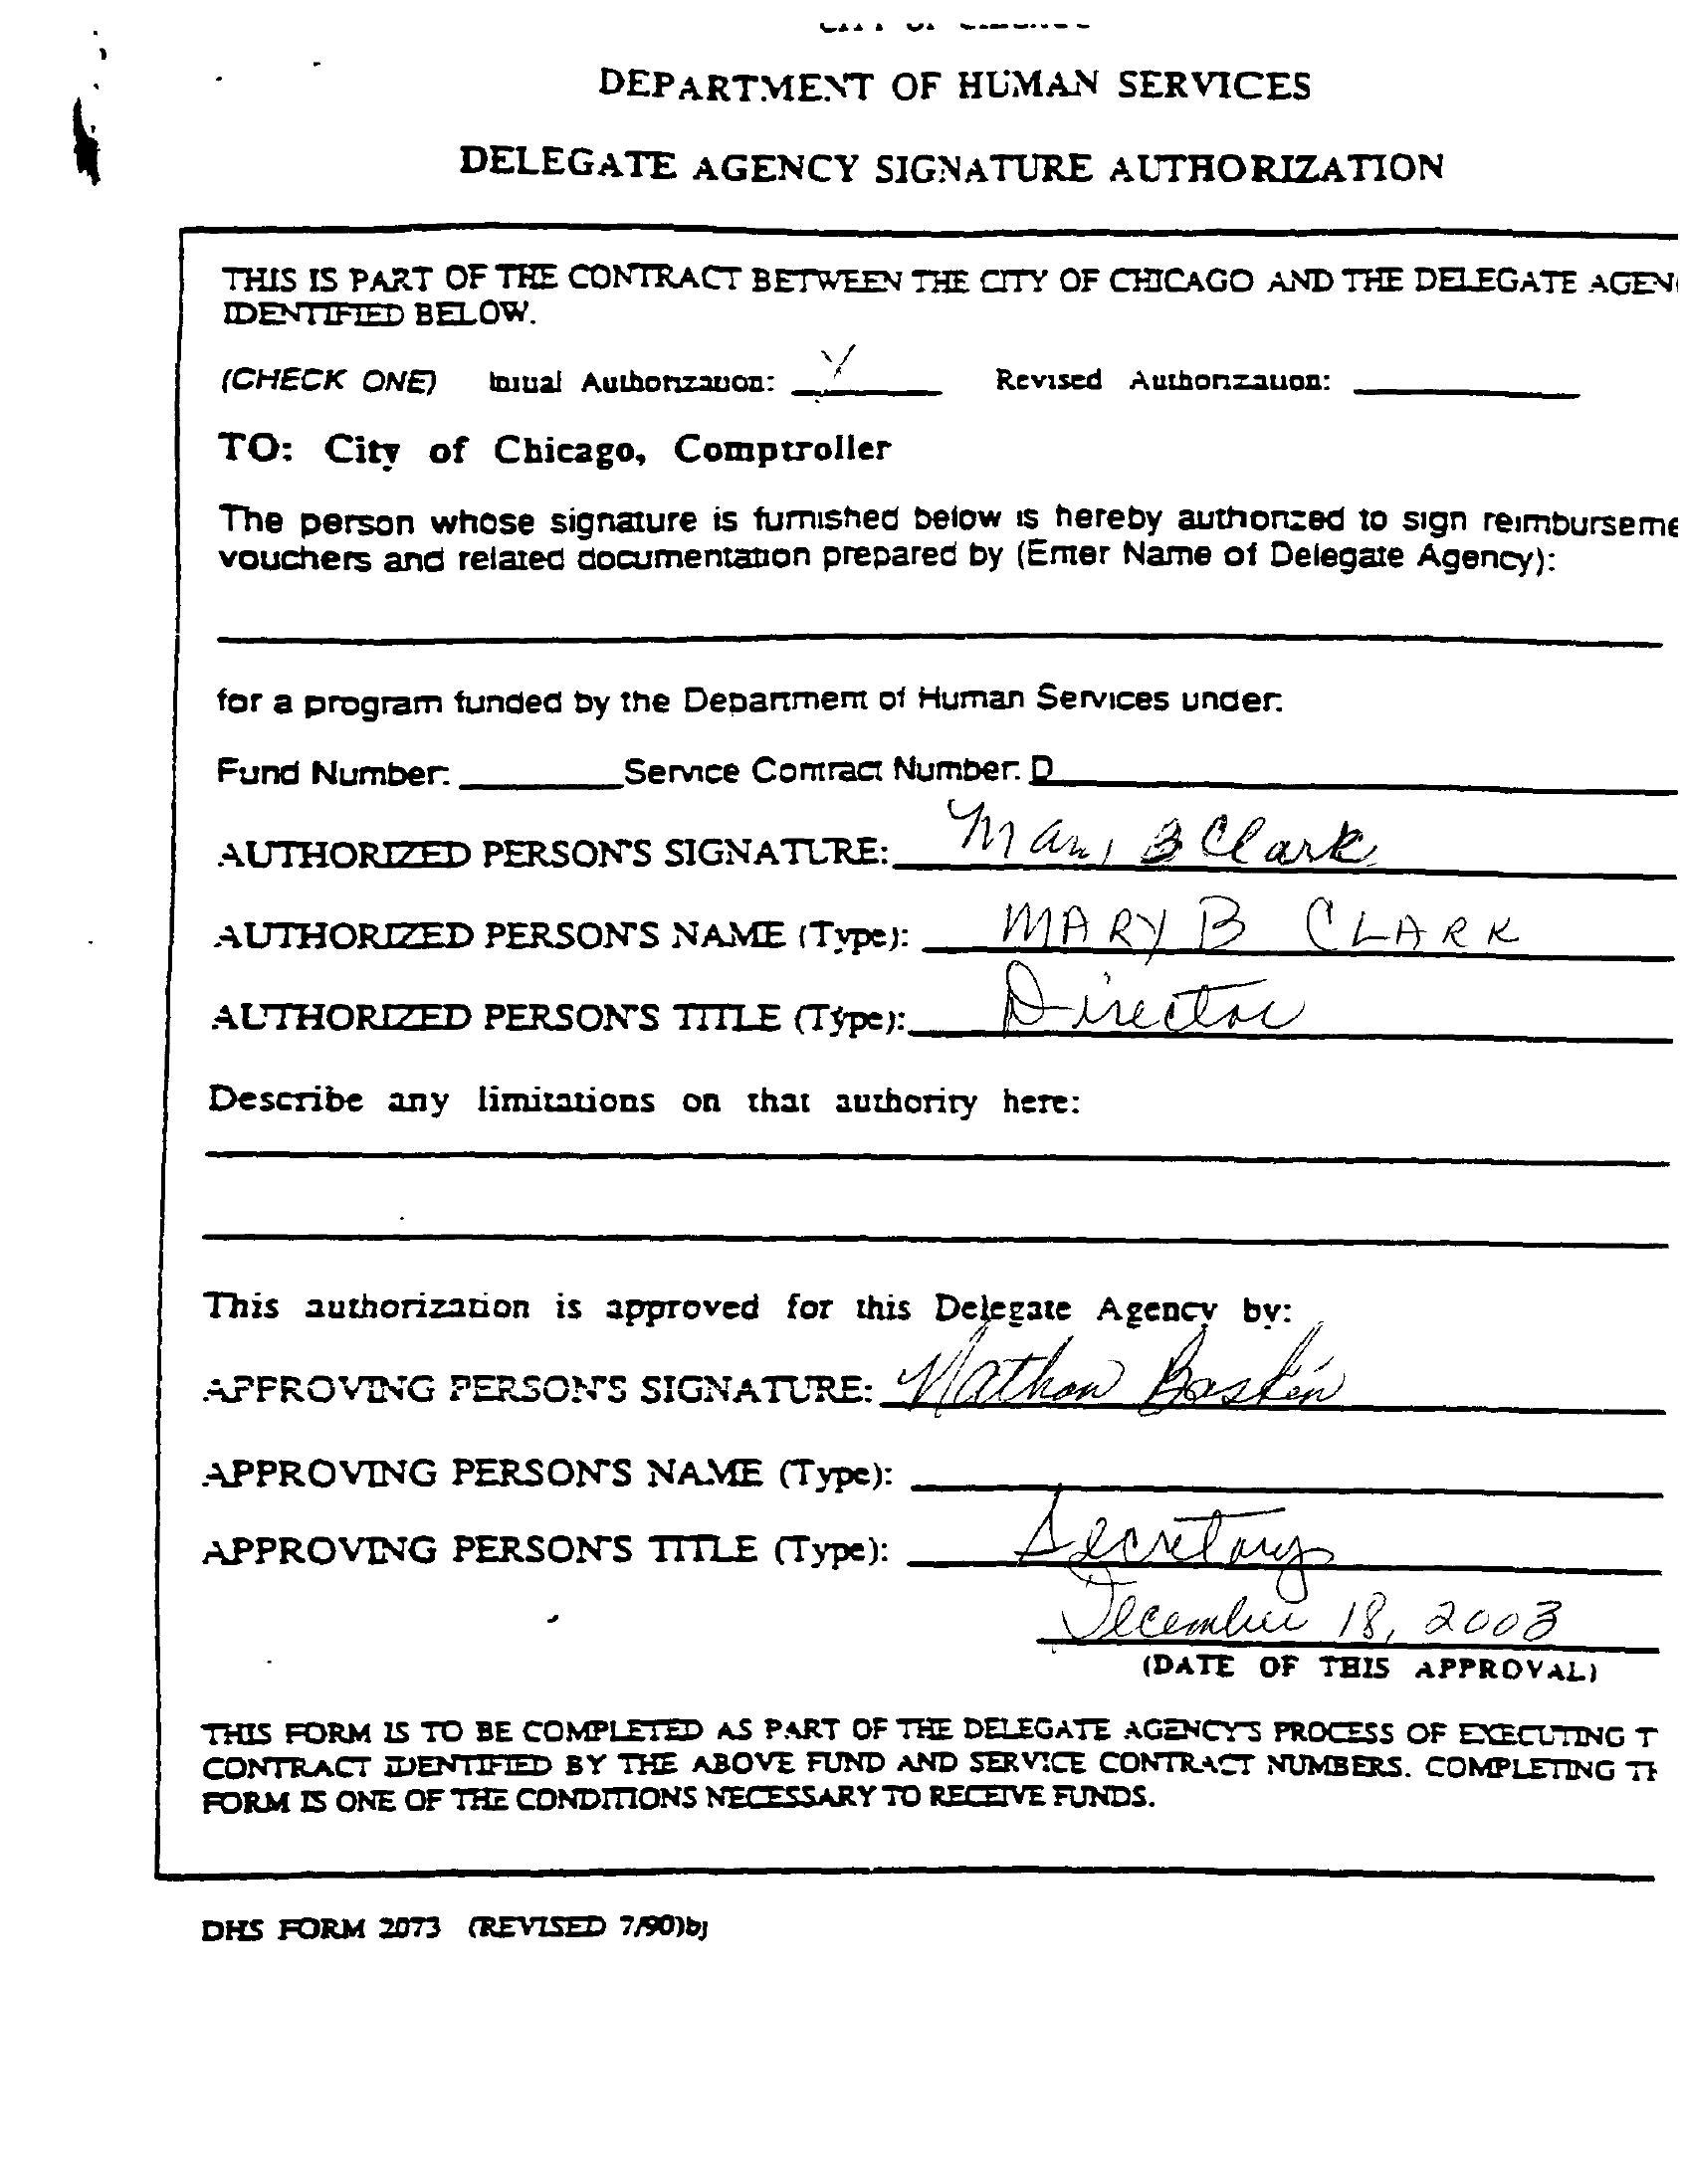 DEPARTMENT OF HUMAN SERVICES
DELEGATE AGENCY SIGNATURE AUTHORIZATION
THIS IS PART OF THE CONTRACT BETWEEN THE CITY OF CHICAGO AND THE DELEGATE AGEN
IDENTIFIED BELOW.
(CHECK ONE) Initial Authorization: Revised Authorization:
TO: City of Chicago, Comptroller
The person whose signature is furnished below is hereby authorized to sign reimburseme
vouchers and related documentation prepared by (Enter Name of Delegate Agency):
for a program funded by the Department of Human Services under:
Fund Number: Service Contract Number: D
AUTHORIZED PERSON'S SIGNATURE: Mary B Clark
AUTHORIZED PERSON'S NAME (Type): MARY B CLARK
AUTHORIZED PERSON'S TITLE (Type): Director
Describe any limitations on that authority here:
This authorization is approved for this Delegate Agency by:
APPROVING PERSON'S SIGNATURE: Nathan Baskin
APPROVING PERSON'S NAME (Type):
APPROVING PERSON'S TITLE (Type): Secretary
December 18, 2003
(DATE OF THIS APPROVAL)
THIS FORM IS TO BE COMPLETED AS PART OF THE DELEGATE AGENCY'S PROCESS OF EXECUTING T
CONTRACT IDENTIFIED BY THE ABOVE FUND AND SERVICE CONTRACT NUMBERS. COMPLETING TH
FORM IS ONE OF THE CONDITIONS NECESSARY TO RECEIVE FUNDS.
DHS FORM 2073 (REVISED 7/90)bj